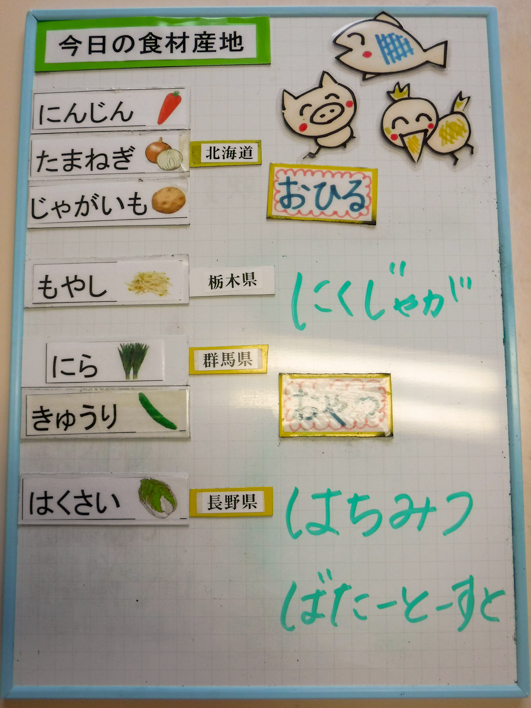 今日の食材産地
にんじん
たまねぎ
北海道
じゃがいも
おひる
もやし
栃木県
にくじゃが
にら
群馬県
きゅうり
おやつ
はくさい
長野県
はちみつ
ばたーとーすと